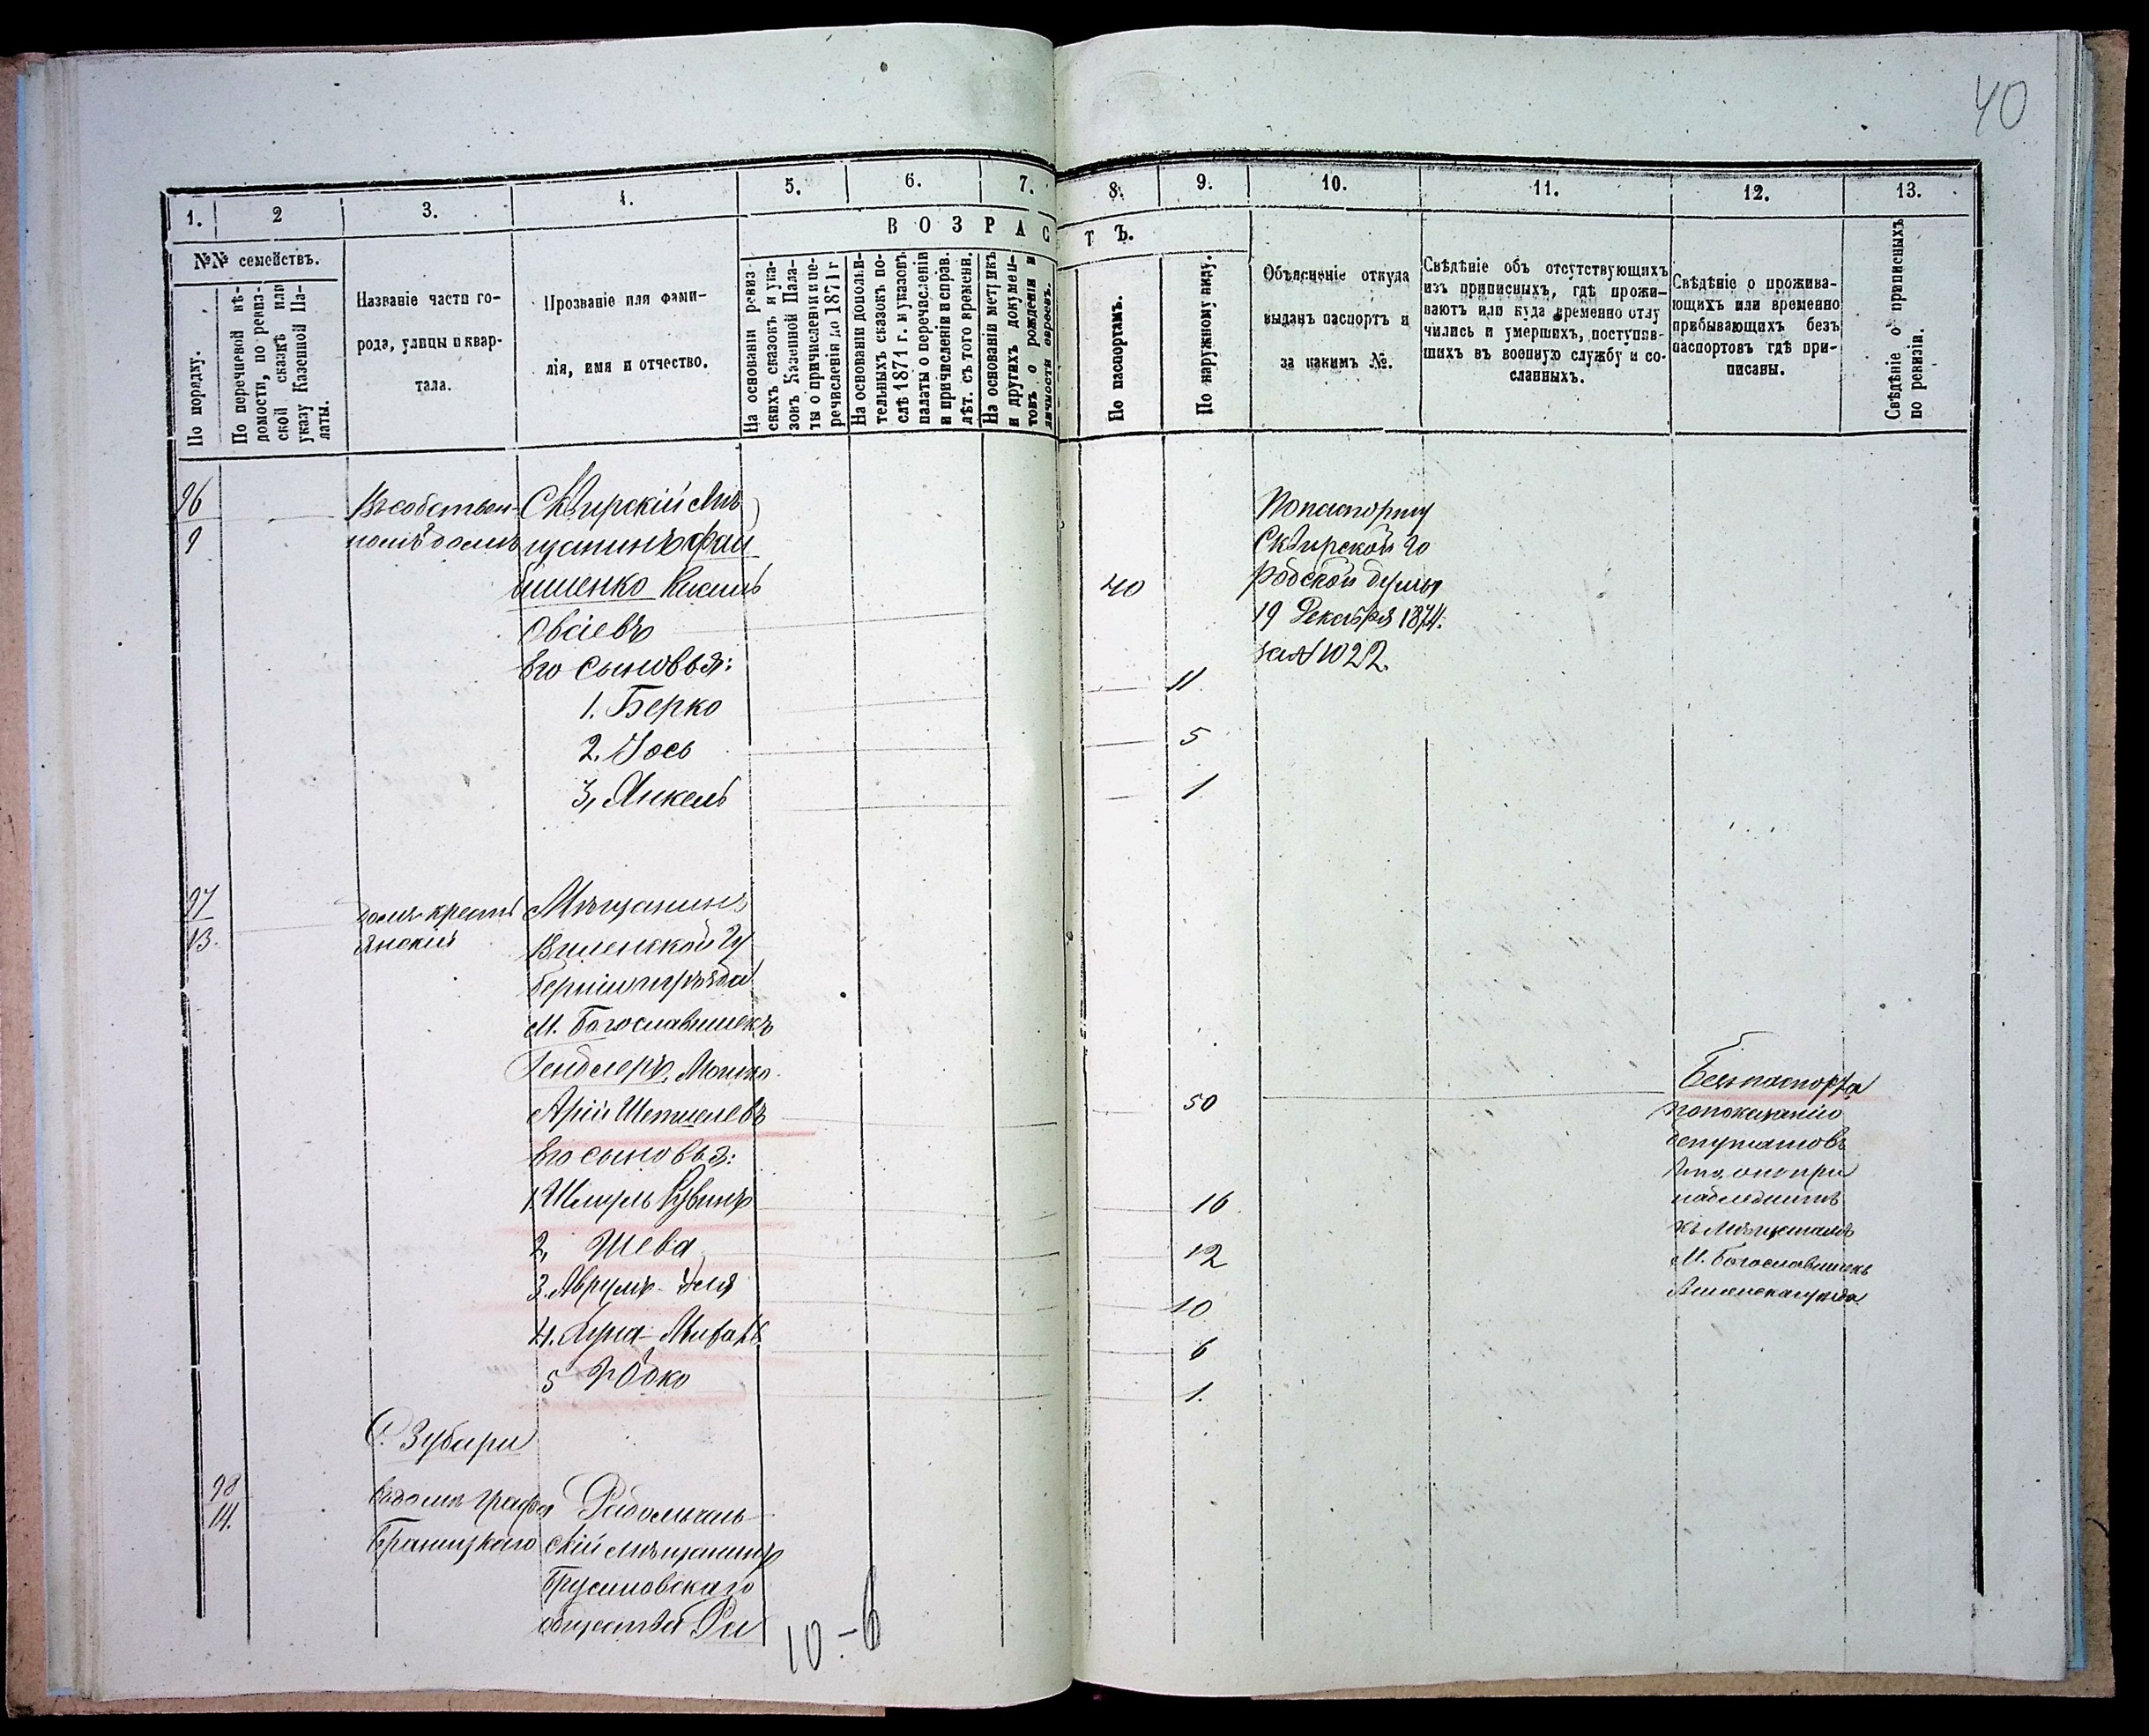 40
1.
2
3.
4.
5.
6.
7.
8.
9.
10.
11.
12.
13.
В О З Р А С
Т Ъ.
№№ семействъ.
По порядку.
По перечневой вѣ-
домости, по ревиз-
ской сказкѣ или
указу Казенной Па-
латы.
Названіе части го-
рода, улицы и квар-
тала.
Прозваніе или фами-
лія, имя и отчество.
На основаніи ревиз-
скихъ сказокъ и ука-
зовъ Казенной Пала-
ты о причисленіи и пе-
речисленіи до 1871 г
На основаніи дополни-
тельныхъ сказокъ по-
слѣ 1871 г. и указовъ
палаты о перечисленіи
и причисленіи и справ.
лѣт. съ того времени.
На основаніи метрикъ
и другихъ докумен-
товъ о рожденіи и
личности евреевъ.
По паспортамъ.
По наружному виду.
Объясненіе откуда
выданъ паспортъ и
за какимъ №.
Свѣдѣніе объ отсутствующихъ
изъ приписныхъ, гдѣ прожи-
ваютъ или куда временно отлу
чились и умершихъ, поступив-
шихъ въ военную службу и со-
сланныхъ.
Свѣдѣніе о прожива-
ющихъ или временно
прибывающихъ безъ
паспортовъ гдѣ при-
писаны.
Свѣдѣніе о приписныхъ
по ревизіи.
96
9
Въ собствен-
номъ домѣ
Сквирскій мѣ
щанинъ Фай
Овсіевъ
Его сыновья:
1. Берко
2. Іось
3, Янкель
40
11
5
1
По паспорту
Сквирской го
родской думы
19 Декабря 1874.
за № 1022.
97
13.
домъ крест
янскій
Мѣщанинъ
Виленской Гу
берніи и уѣзда
М. Богославишекъ
Гендлеръ, Мошко
Арій Шепшелевъ
Его сыновья:
1. Шмуль Рувинъ
2, Шева
3. Аврумъ-
4.
5
50
16
12
10
6
1.
Безъ паспорта
по показанію
депутатовъ
что, онъ при
надлежитъ
къ мѣщанамъ
М. Богославишекъ
Виленска уѣзда
С. Зубари
98
14.
въ домѣ графа
Браницкаго
Радомысль-
скій мѣщанинъ
Брусиловскаго
общества Ра
10-6